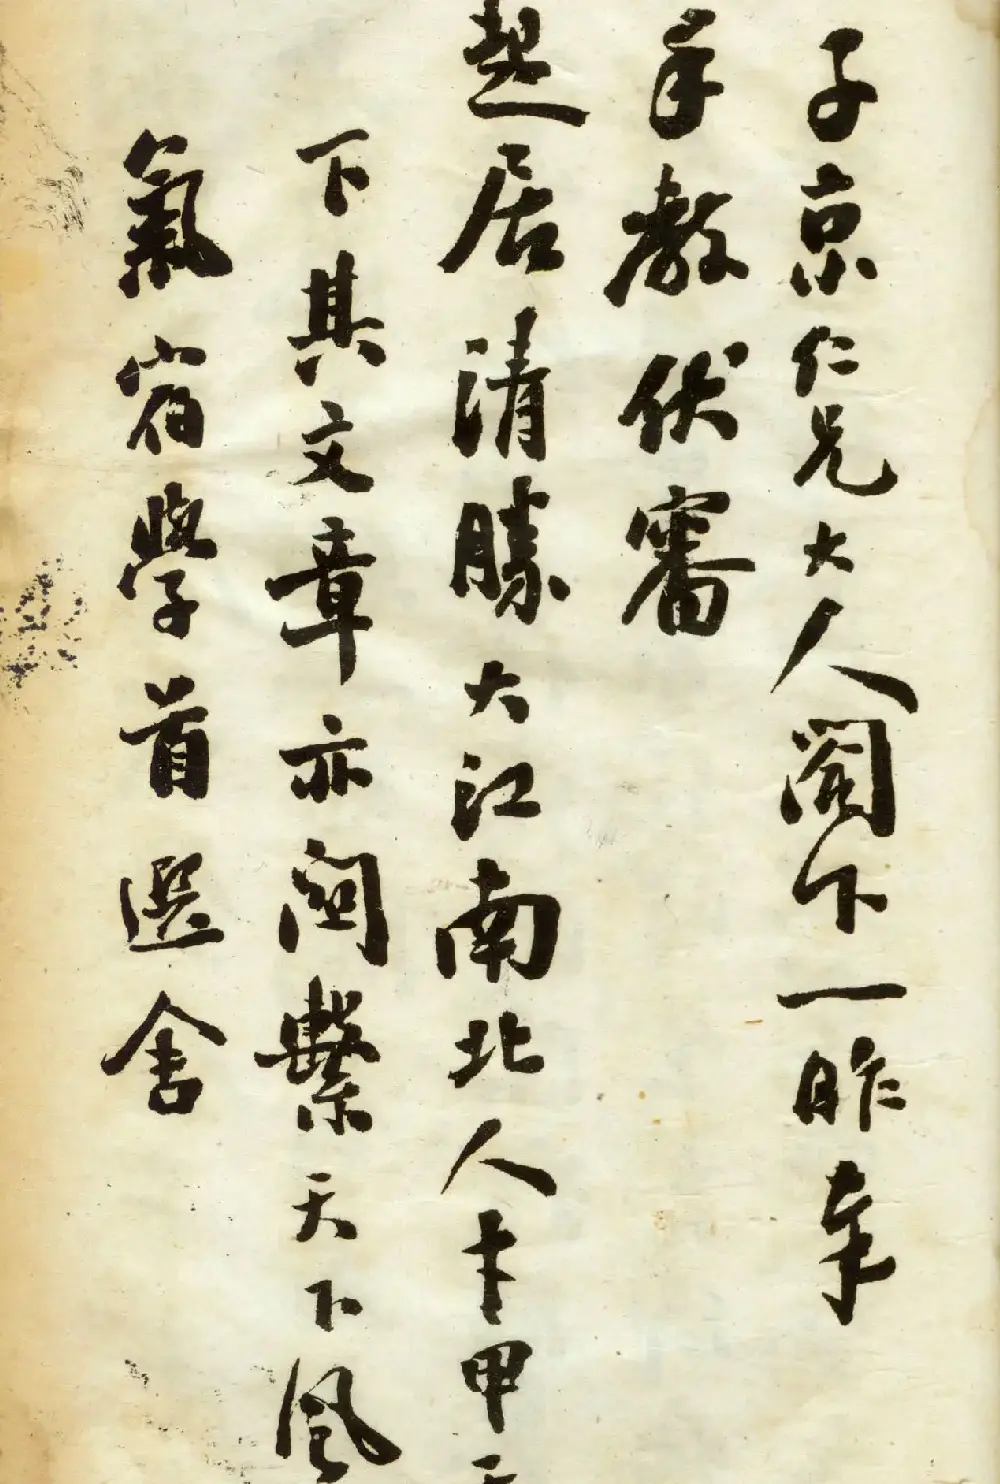 子京仁兄大人閣下一昨奉
手教伏審
起居清勝大江南北人才甲天
下其文章亦關繫天下風
氣宿學首選舍